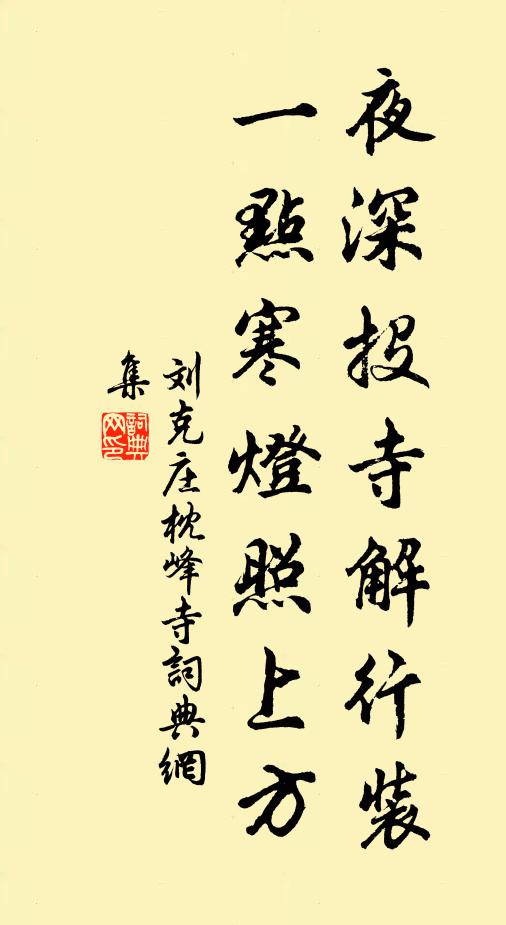 夜深投寺解行裝
一點寒燈照上方
刘克庄枕峰寺詞典網
集
詞典
网印